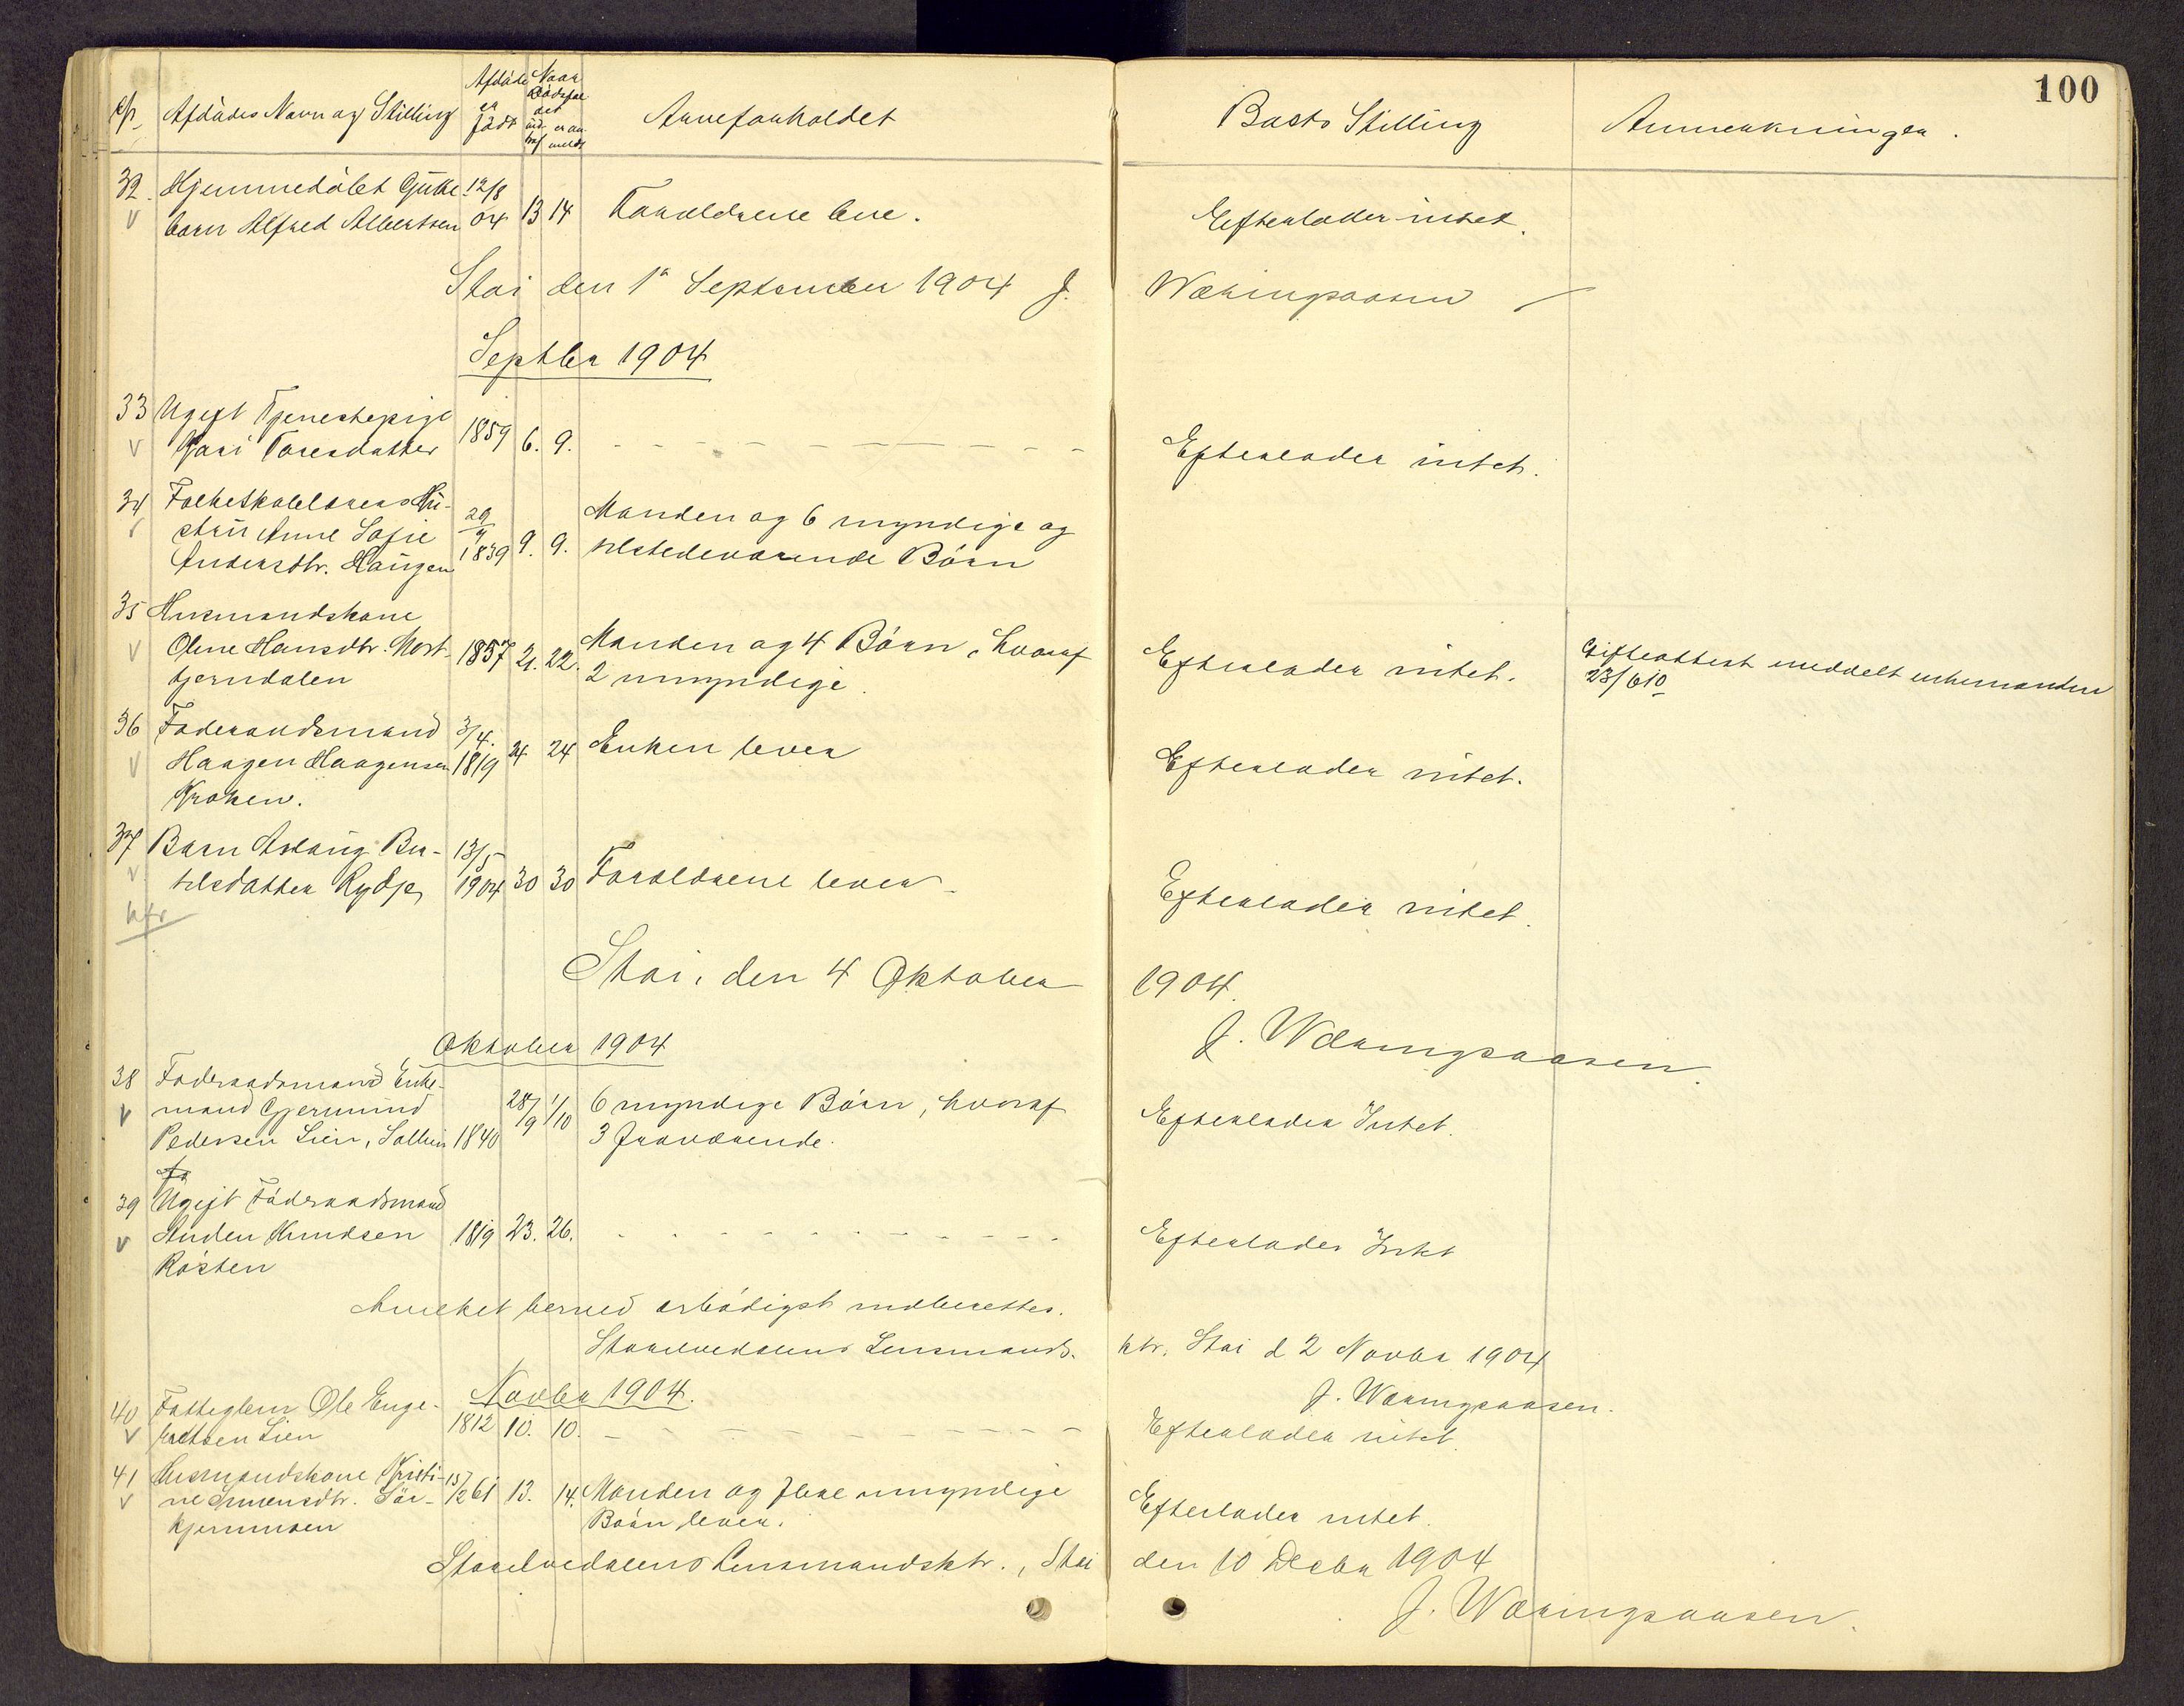 100
Afdødes Navn og Stilling
Afdøde er født
Naar Dødsfaldet indtraf er anmeldt
Arveforholdet
Boets Stilling
Anmerkninger.
32. Hjemmedøbt Gutte- 12/8
barn Alfred Albertsen 04 13 14 Forældrene leve. Efterlader intet.
Stai den 1ste September 1904 J. Wæringsaasen
Septbr 1904
33 Ugift Tjenestepige
Kari Toresdatter 1859 6. 9. Efterlader intet.
34 Folkeskolelærers Hu-
stru Anne Sofie 29/4 Manden og 6 myndige og
Andersdtr. Haugen 1839 9. 9. tilstedeværende Børn
35 Husmandskone
Oline Hansdtr. Mort- 1857 21. 22. Manden og 4 Børn, hvoraf Efterlader intet. Gifteattest meddelt enkemanden
tjerndalen 2 umyndige. 23/6 10
36 Føderaadsmand 3/4.
Haagen Haagensen 1819 24 24 Enken lever Efterlader intet.
Kroken.
37 Barn Aslaug Ber- 13/5
tilsdatter Rydje 1904 30 30 Forældrene lever Efterlader intet.
kfr
Stai, den 4 Oktober 1904.
J. Wæringsaasen.
Oktober 1904
38 Føderaadsmand Enke-
mand Gjermund 28/9 1/10 6 myndige Børn, hvoraf Efterlader Intet.
Pedersen Lien, Sollien 1840 3 fraværende.
39 Ugift Føderaadsmand
Anders Knudsen 1819 23. 26. Efterlader Intet
Røsten
hvilket herved ærbødigst indberettes.
Storelvedalens Lensmands- ktr. Stai d 2 Novbr 1904
J. Wæringsaasen.
Novbr 1904.
40 Fattiglem Ole Enge-
bretsen Lien 1812 10. 10. Efterlader intet
41 Husmandskone Kristi- 15/
ne Simensdtr. Sør- 12 61 13. 14. Manden og flere umyndige Efterlader intet.
kjernmoen Børn lever.
Storelvedalens Lensmandsktr., Stai den 10 Decbr 1904
J. Wæringsaasen.